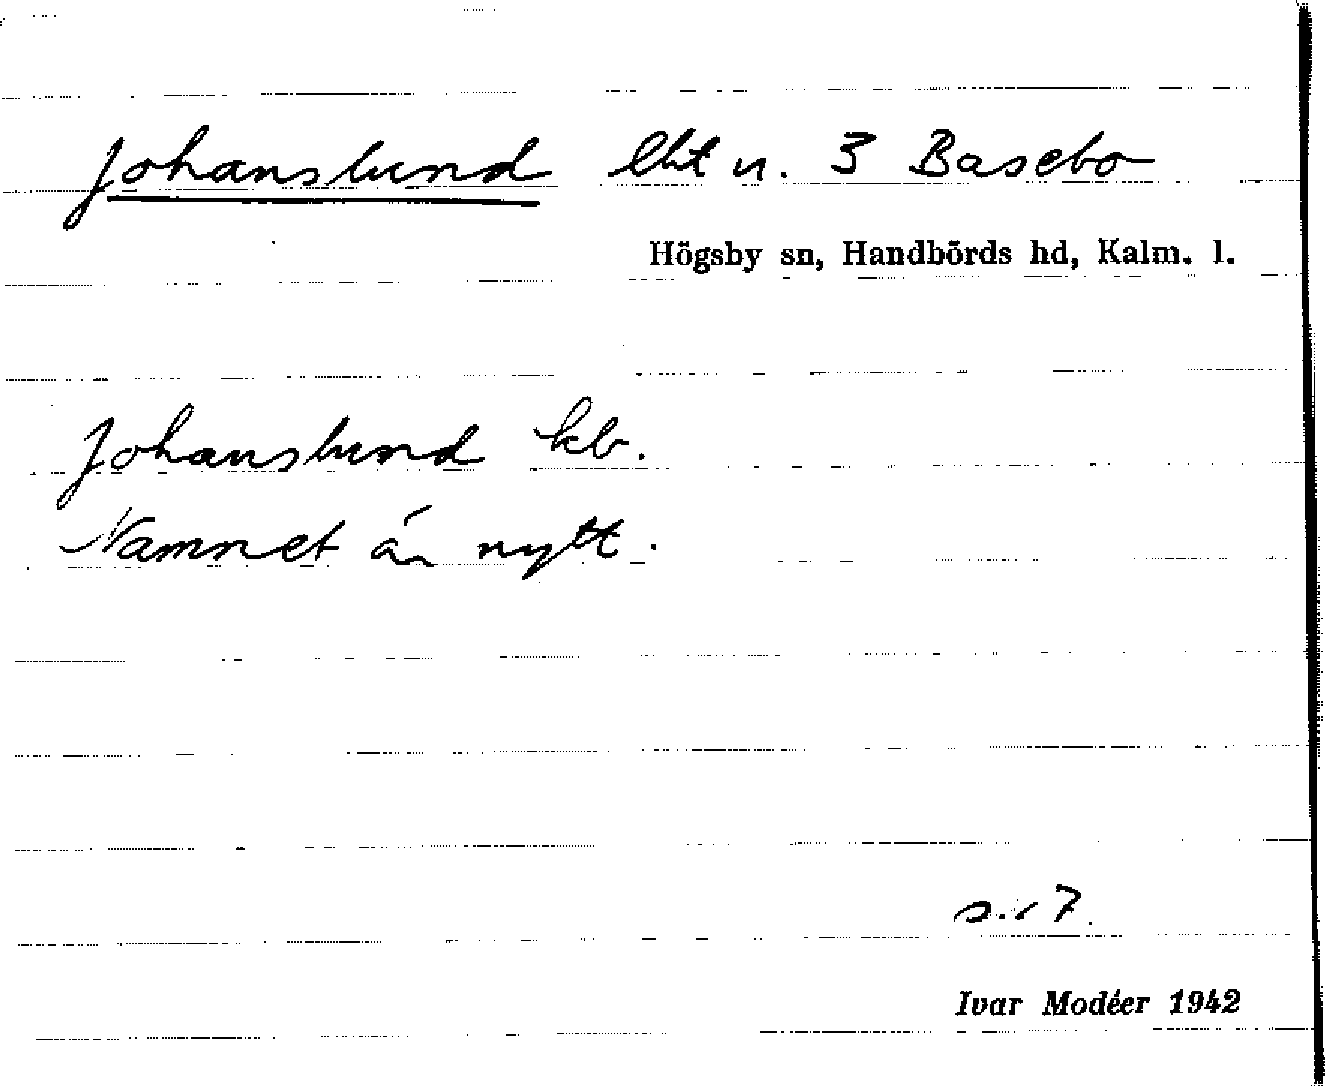 Johanslund lht u. 3 Basebo
Högsby sn, Handbörds hd, Kalm. l.
Johanslund kb.
Namnet är nytt.
s. 7.
Ivar Modéer 1942